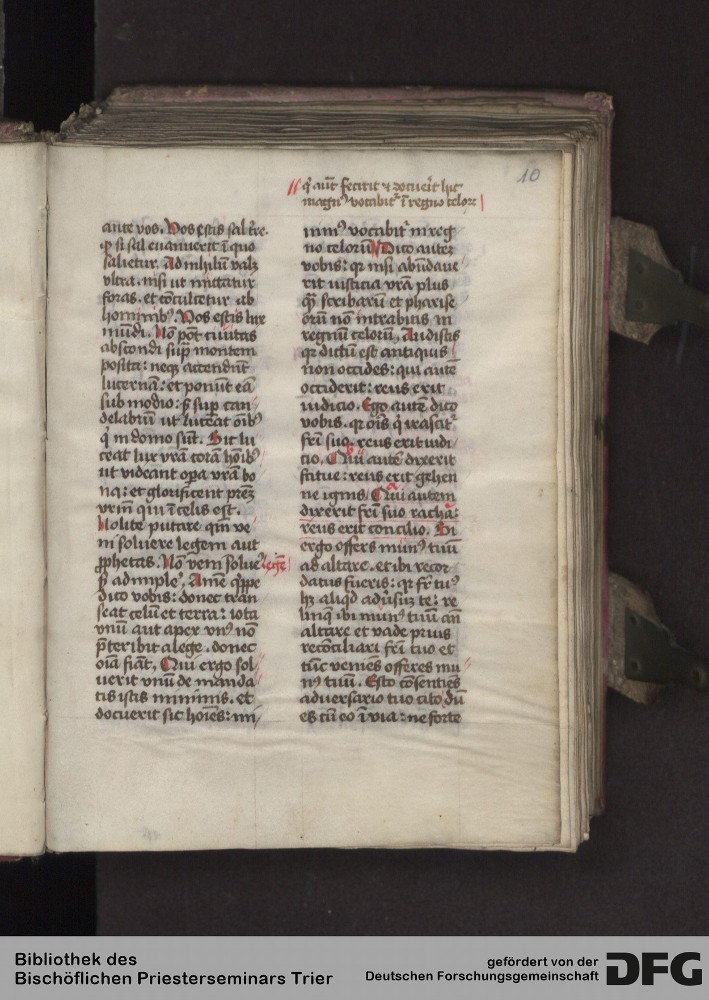 10
qͥ aut̄ fecerit ⁊ docuerit hic
magnꝰ vocabitᷣ ī regno celoꝝ
ante vos. Vos estis sal t̄re.
qͩ si sal euanuerit ī quo
salietur. Ad nihilū valꝫ
vltra. nisi ut mittatur
foras. et cōculcetur ab
hominibꝰ. Vos estis lux
mūdi. Nō pōt ciuitas
abscondi supͣ montem
posita: neqꝫ accendūt
lucernā: et ponūt eā
sub modio: sꝫ supͣ can
delabrū ut luceat oībꝰ
qͥ in domo sūt. Sic lu
ceat lux vrā corā hoībꝰ
ut videant oꝑa vrā bo
na: et glorificent prēꝫ
vrm̄ qui ī celis est.
Nolite putare qm̄ ve
ni soluere legem aut
ꝓphetas. Nō veni soluē legē
sꝫ adimple᷒. Amē q̄ppe
dico vobis: donec tran
seat celū et terra: iota
vnū aut apex vnꝰ nō
p̄teribit a lege. donec
oīa fiāt. Qui ergo sol
uerit vnū de manda
tis istis minimis. et
docuerit sic hoīes: mi
nimꝰ vocabitᷣ in reg
no celorū. Dico auteꝫ
vobis: qꝛ nisi abūdaue
rit iusticia vrā plus
qͣ̄ scribarū et pharise
orū nō intrabitis in
regnū celorū. Audistis
qꝛ dictū est antiquis
non occides: qui autē
occiderit: reus erit
iudicio. Ego autē dico
vobis. qꝛ oīs qͥ irascitᷣ
frī suo. reus erit iudi
cio. Qui autē dixerit
fatue: reus erit gehen
ne ignis. Qui autem
dixerit frī suo racha:
reus erit concilio. Si
ergo offers munꝰ tuū
ad altare. et ibi recor
datus fueris: qꝛ fr̄ tuꝰ
hꝫ aliqͥd aduͣsuꝫ te: re
linq̄ ibi munꝰ tuū an̄
altare et vade prius
reconciliari frī tuo et
tūc veniēs offeres mu
nꝰ tuū. Esto cōsentiēs
aduersario tuo cito dū
es cū eo ī via: ne forte
Bibliothek des
Bischöflichen Priesterseminars Trier
gefördert von der
Deutschen Forschungsgemeinschaft
DFG